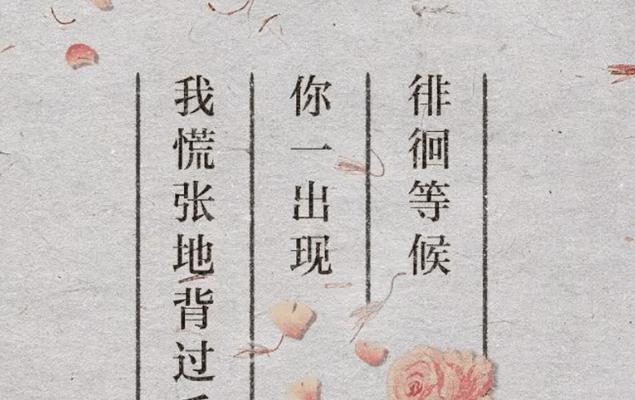 徘徊等候
你一出现
我慌张地背过